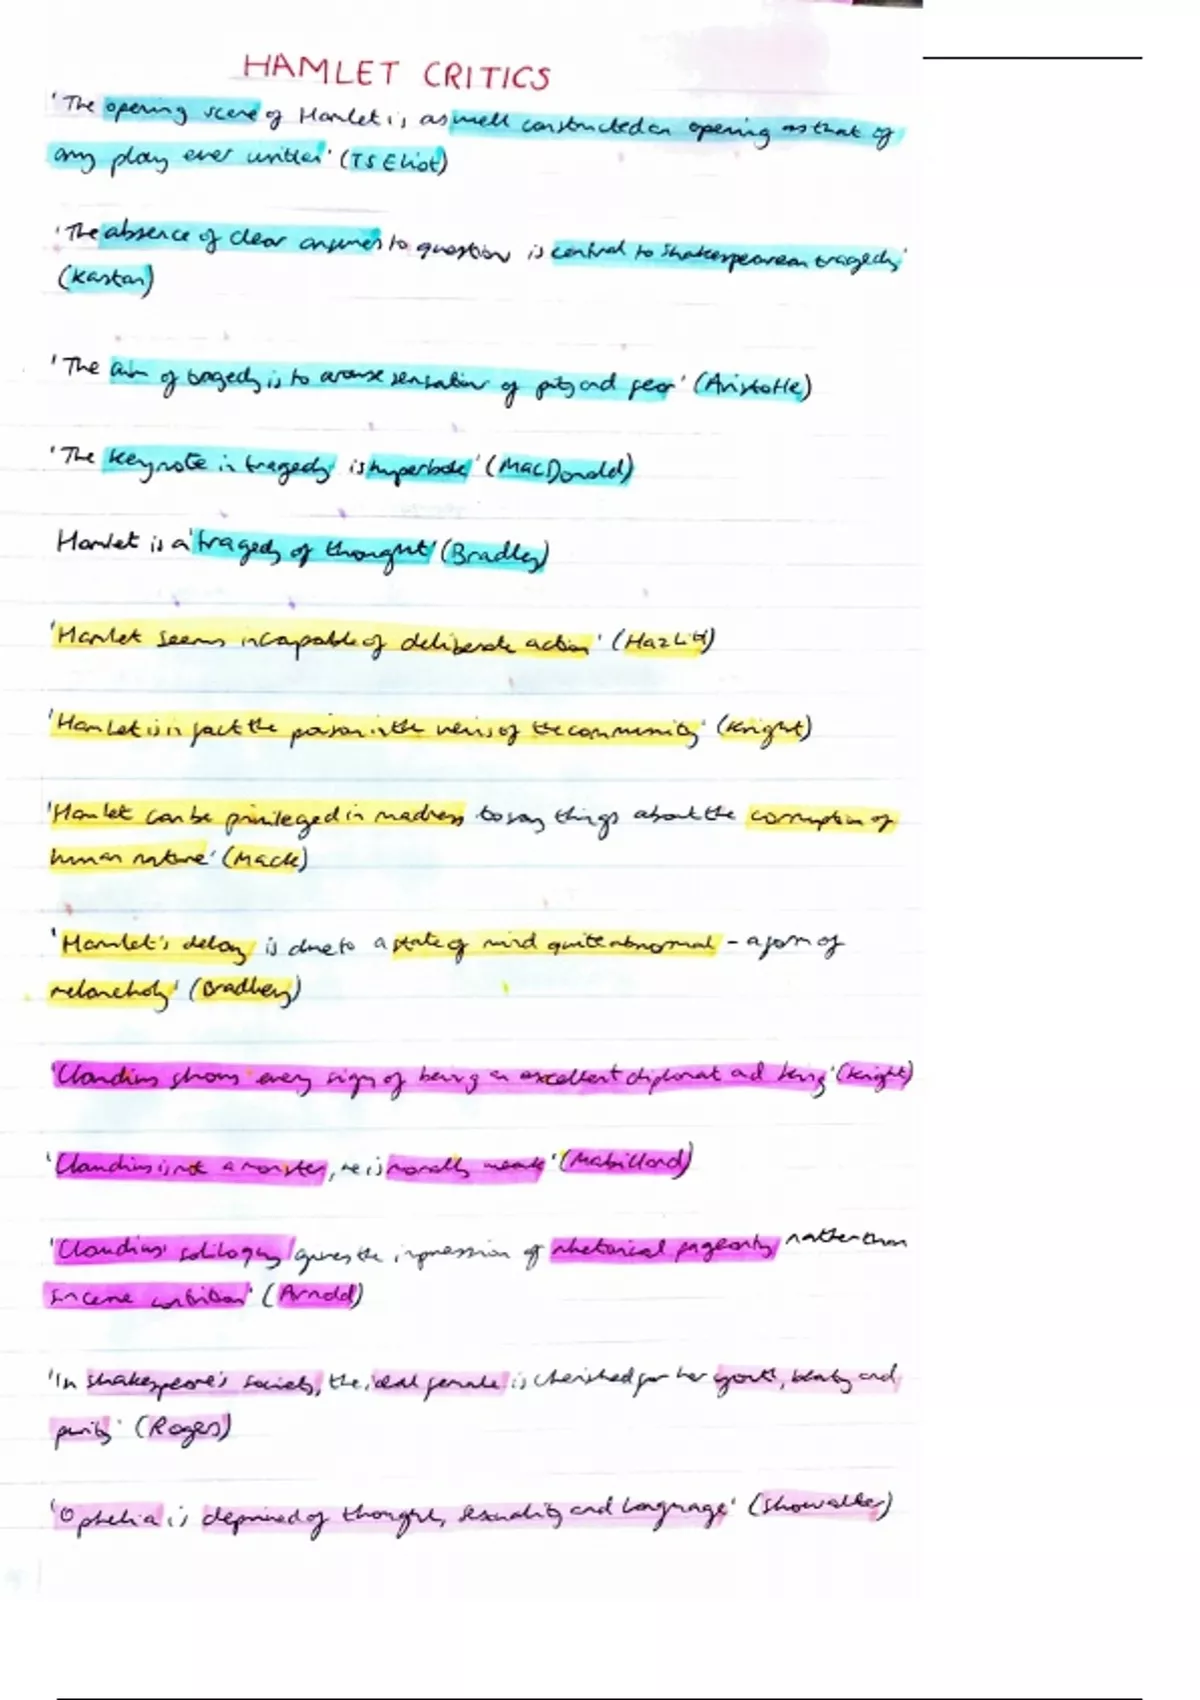 HAMLET CRITICS
'The opening scene of Hamlet is as well constructed an opening as that of
any play ever written' (TS Eliot)
'The absence of clear answers to question is central to Shakespearean tragedy'
(Kastan)
'The aim of tragedy is to arouse sensation of pity and fear' (Aristotle)
'The keynote in tragedy is hyperbole' (MacDonald)
Hamlet is a 'tragedy of thought' (Bradley)
'Hamlet seems incapable of deliberate action' (Hazlitt)
'Hamlet is in fact the poison in the veins of the community' (Knight)
'Hamlet can be privileged in madness to say things about the corruption of
human nature' (Mack)
'Hamlet's delay is due to a state of mind quite abnormal - a form of
melancholy' (Bradley)
'Claudius shows every sign of being an excellent diplomat and king' (Knight)
'Claudius is not a monster, he is morally weak' (Mabillard)
'Claudius' soliloquy gives the impression of rhetorical pageantry rather than
sincere contrition' (Arnold)
'In Shakespeare's society, the ideal female is cherished for her youth, beauty and
purity' (Rogers)
'Ophelia is deprived of thought, sexuality and language' (Showalter)